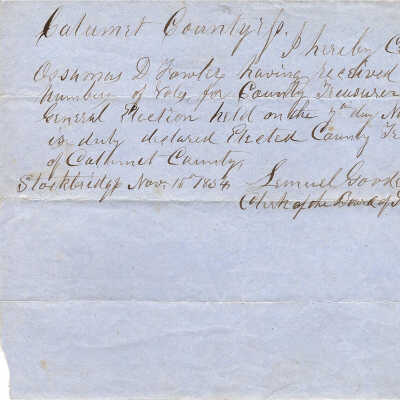 Calumet County ss.
I hereby C
Ossamas D Fowler having received
number of Vots for County Treasurer
General Election held on the 7th day No
is duly declared Elected County Tre
of Calumet County,
Stockbridge Nov. 15th 1854 Lemuel Goode
Clerk of the Board of S